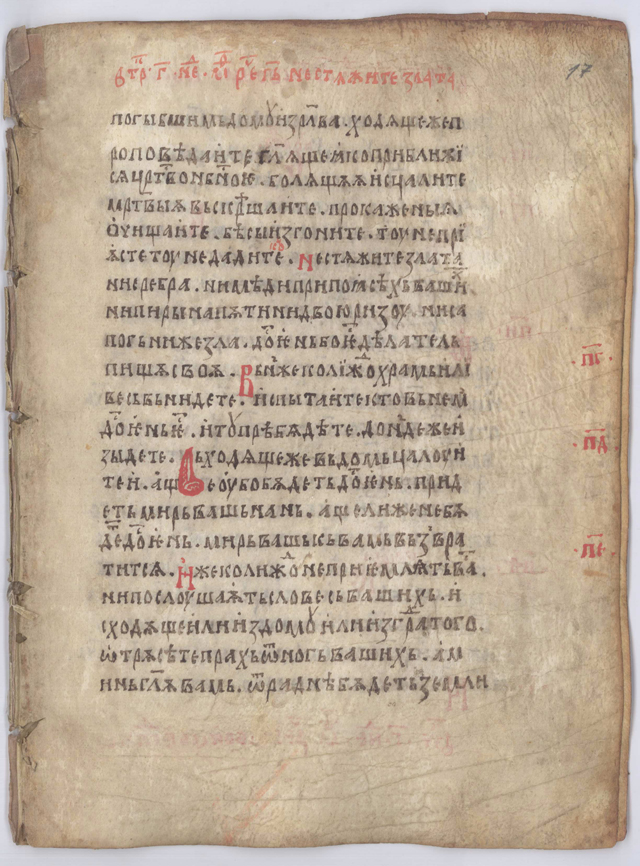 ꙋтр҃ г҃ не҃д ѿ реⷱ гь не стѧжите злата
17
погыбшимь домꙋ їзр҃лва · ходѧще же п
роповѣдаите гл҃ѧще ꙗко приближї
сѧ цр҃тво нб҃ноѥ · болѧщѧѧ исцалите
мр҃твыѧ вьскр҃шаите · прокаженыѧ
ѡчищаите · бѣсы изгоните · тоуне прї
ѧсте тоуне дадите · Не стѧжите злата
ни сребра · ни мѣди при поꙗсѣхь вашиⷯ
ни пиры на пѧти ни двою ризоу · ни са
погь ни жезла · дⷭ҇оинь бо ѥⷭ҇ дѣлатель
пищѧ своѧ · Вь ниже колїждо храмь илї
весь вьнидете · испытаите кто вь нем
дⷭ҇оинь ѥⷭ҇ · и тꙋ прѣбѧдѣте · дондеже и
зыдете · Вьходѧще же вь домь цалоуи
те и · аще оубо бѧдеть дⷭ҇оинь · прид
еть мирь вашь на нь · аще ли же не бѧ
деⷮ дⷭ҇оинь · мирь вашь кь вамь вьзвра
титсѧ · Иже колиждо не приѥмлѧть ваⷭ ·
ни послоушаѧть словесь вашихь · и
сходѧще или из домꙋ или из граⷣ того ·
ѿтрѧсѣте прахь ѿ ногь вашихь · ам
инь гл҃ѧ вамь · ѿраднѣ бѧдеть земли
п҃г
п҃д
п҃е